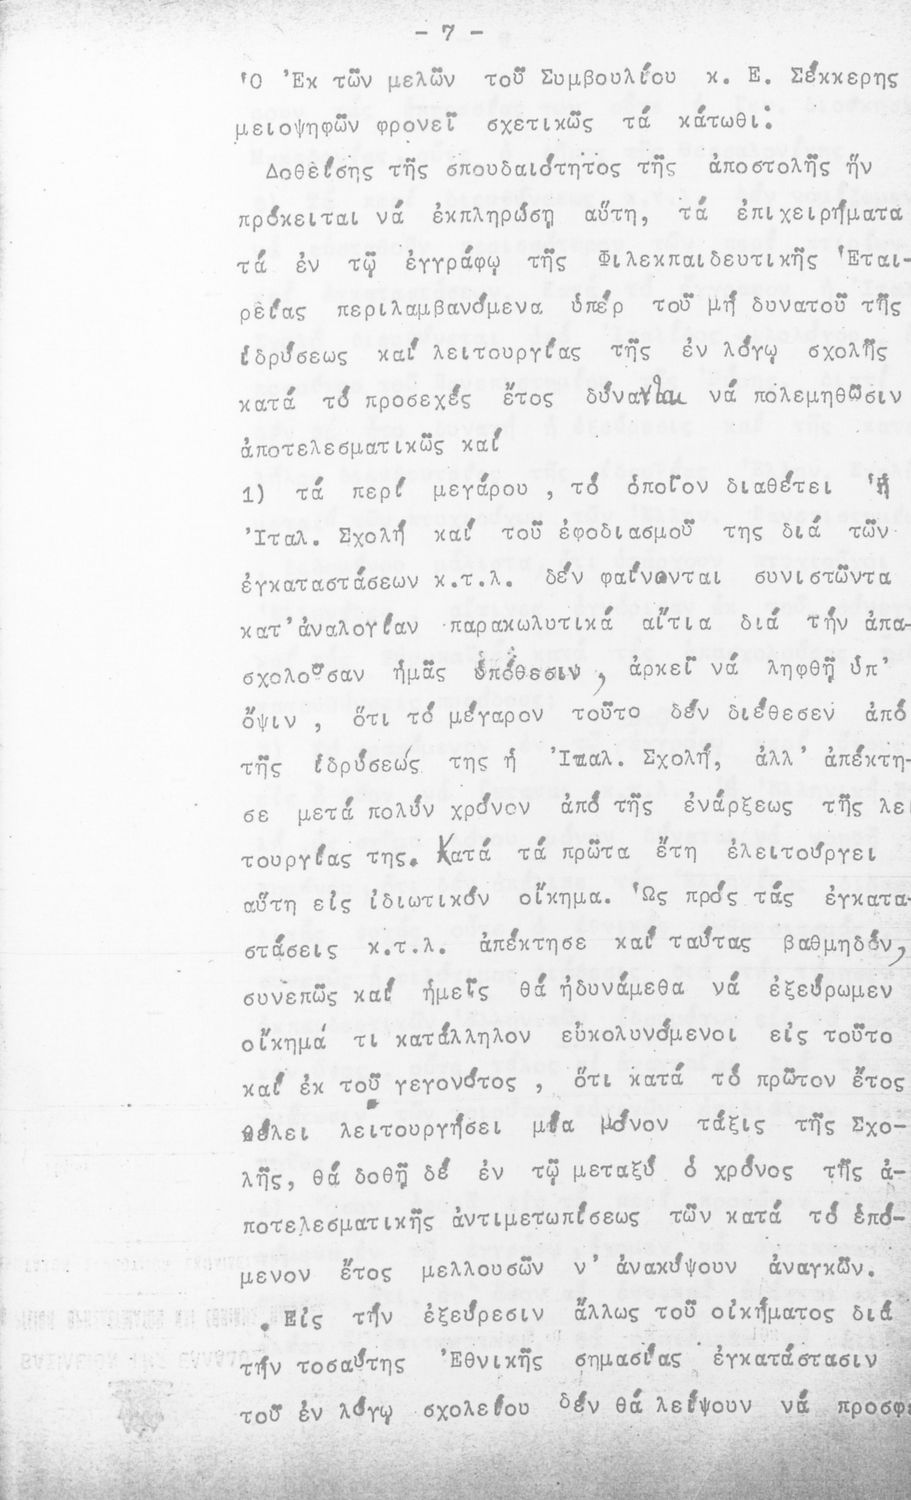 - 7 -
Ὁ Ἐκ τῶν μελῶν τοῦ Συμβουλίου κ. Ε. Σέκκερης
μειοψηφῶν φρονεῖ σχετικῶς τά κάτωθι:
Δοθείσης τῆς σπουδαιότητος τῆς ἀποστολῆς ἥν
πρόκειται νά ἐκπληρώσῃ αὕτη, τά ἐπιχειρήματα
τά ἐν τῷ ἐγγράφῳ τῆς Φιλεκπαιδευτικῆς Ἑται-
ρείας περιλαμβανόμενα ὑπέρ τοῦ μή δυνατοῦ τῆς
ἱδρύσεως καί λειτουργίας τῆς ἐν λόγῳ σχολῆς
κατά τό προσεχές ἔτος δύνανται νά πολεμηθῶσιν
ἀποτελεσματικῶς καί
1) τά περί μεγάρου , τό ὁποῖον διαθέτει ἡ
Ἰταλ. Σχολή καί τοῦ ἐφοδιασμοῦ της διά τῶν
ἐγκαταστάσεων κ.τ.λ. δέν φαίνονται συνιστῶντα
κατ' ἀναλογίαν παρακωλυτικά αἴτια διά τήν ἀπα-
σχολοῦσαν ἡμᾶς ὑπόθεσιν, ἀρκεῖ νά ληφθῇ ὑπ'
ὄψιν , ὅτι τό μέγαρον τοῦτο δέν διέθεσεν ἀπό
τῆς ἱδρύσεώς της ἡ Ἰταλ. Σχολή, ἀλλ' ἀπέκτη-
σε μετά πολύν χρόνον ἀπό τῆς ἐνάρξεως τῆς λει
τουργίας της. Κατά τά πρῶτα ἔτη ἐλειτούργει
αὕτη εἰς ἰδιωτικόν οἴκημα. Ὡς πρός τάς ἐγκατα-
στάσεις κ.τ.λ. ἀπέκτησε καί ταύτας βαθμηδόν,
συνεπῶς καί ἡμεῖς θά ἠδυνάμεθα νά ἐξεύρωμεν
οἴκημά τι κατάλληλον εὐκολυνόμενοι εἰς τοῦτο
καί ἐκ τοῦ γεγονότος , ὅτι κατά τό πρῶτον ἔτος
θέλει λειτουργήσει μία μόνον τάξις τῆς Σχο-
λῆς, θά δοθῇ δέ ἐν τῷ μεταξύ ὁ χρόνος τῆς ἀ-
ποτελεσματικῆς ἀντιμετωπίσεως τῶν κατά τό ἑπό-
μενον ἔτος μελλουσῶν ν' ἀνακύψουν ἀναγκῶν.
Εἰς τήν ἐξεύρεσιν ἄλλως τοῦ οἰκήματος διά
τήν τοσαύτης Ἐθνικῆς σημασίας ἐγκατάστασιν
τοῦ ἐν λόγῳ σχολείου δέν θά λείψουν νά προσφέ